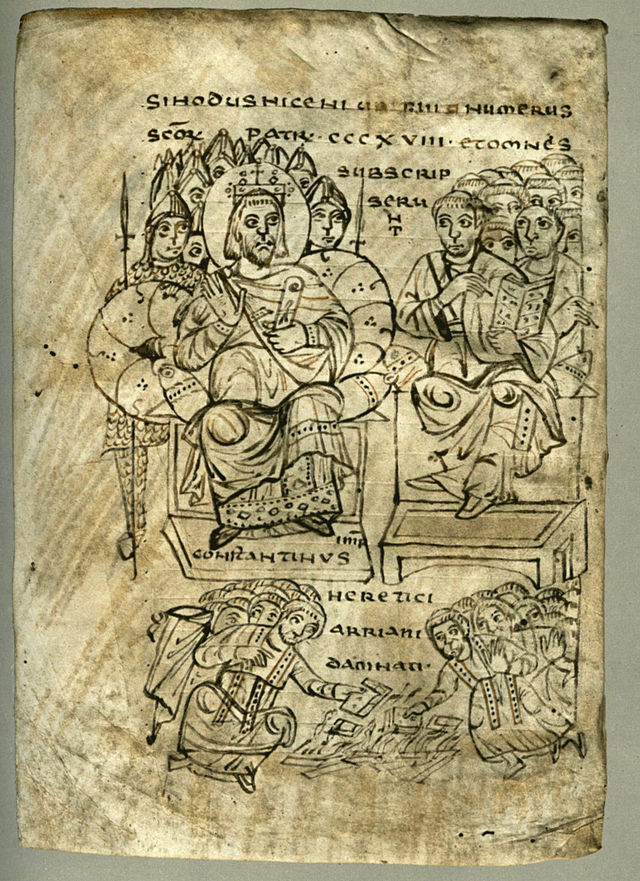 SINODUS NICENI NUMERUS
SCŌR PATRU · CCCXVIII · ET OMNES
SUBSCRIP
SERU
NT
IMP
CONSTANTINVS
HERETICI
ARRIANI
DAMNATI ·